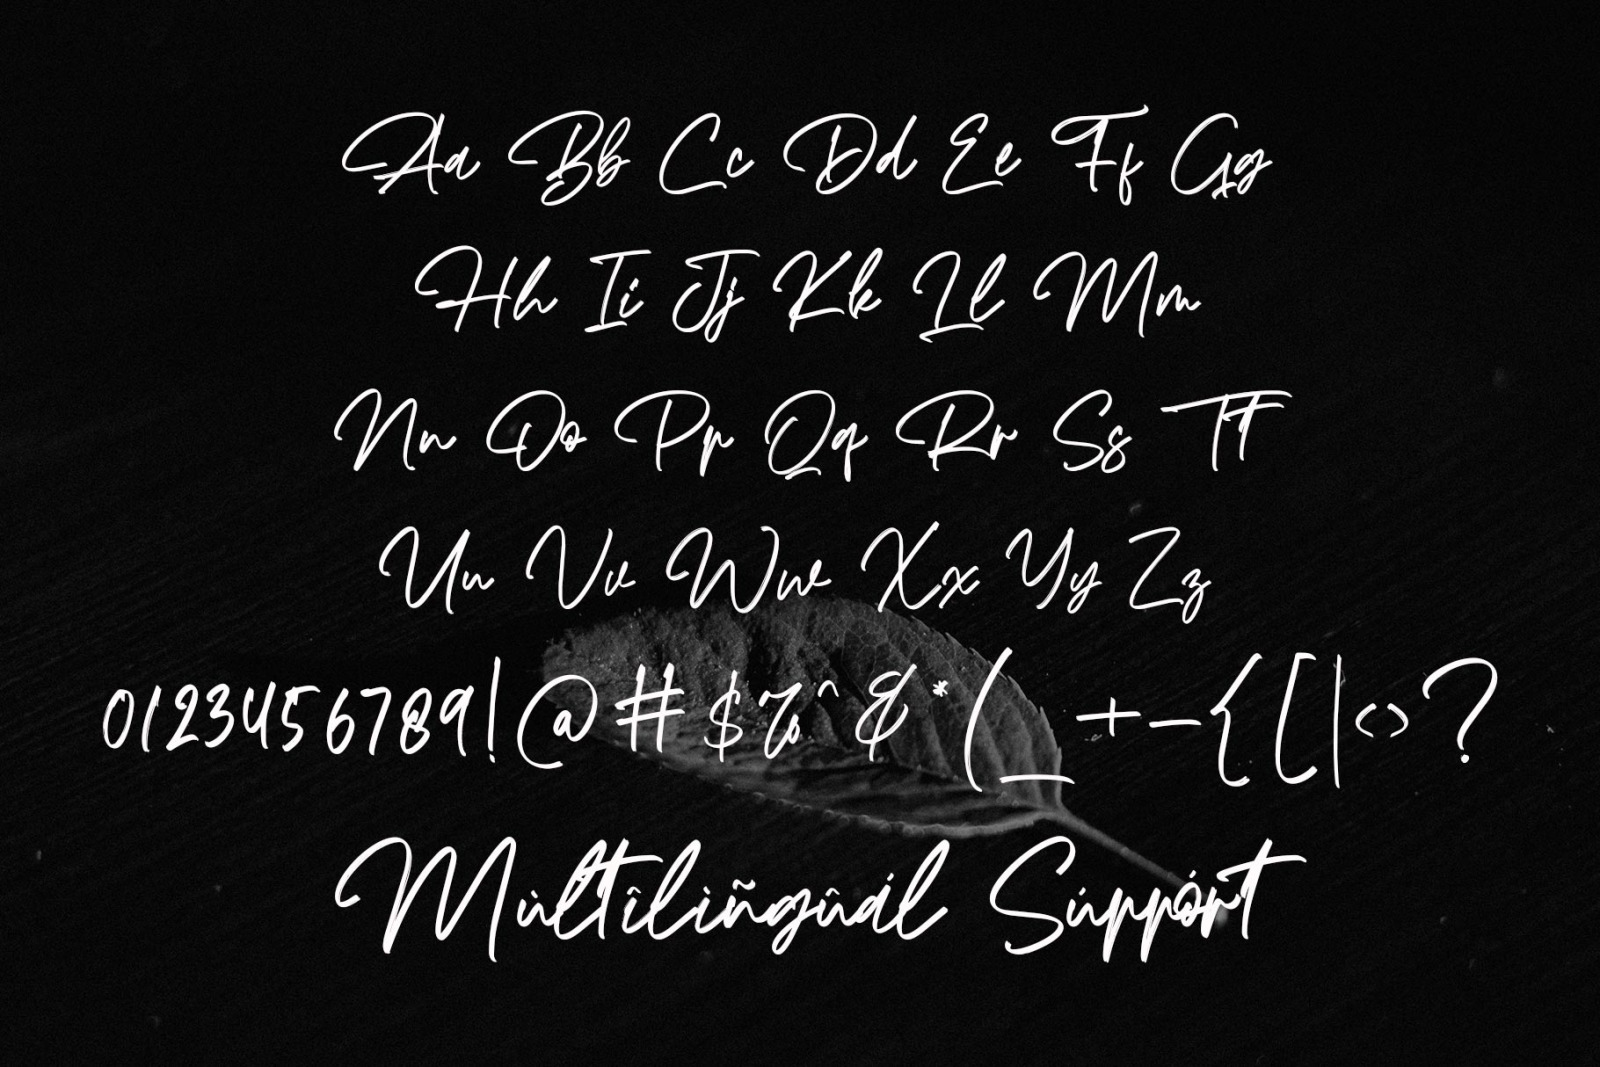 Aa Bb Cc Dd Ee Ff Gg
Hh Ii Jj Kk Ll Mm
Nn Oo Pp Qq Rr Ss Tt
Uu Vv Ww Xx Yy Zz
0123456789!@#$%^&*(_+-{[|<>?
Mùltîlìñgûál Súppórt